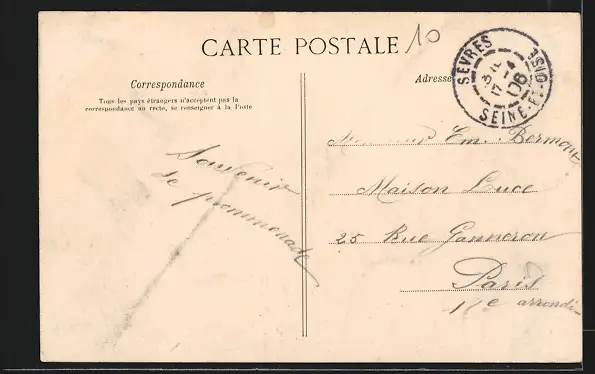 CARTE POSTALE
10
Correspondance
Tous les pays étrangers n'acceptent pas la
correspondance au recto, se renseigner à la Poste
Souvenir
de promenade
Adresse
SEVRES
17 -4
06
SEINE-ET-OISE
Monsieur Em. Bermont
Maison Luce
25 Rue Ganneron
Paris
18e arrondi-